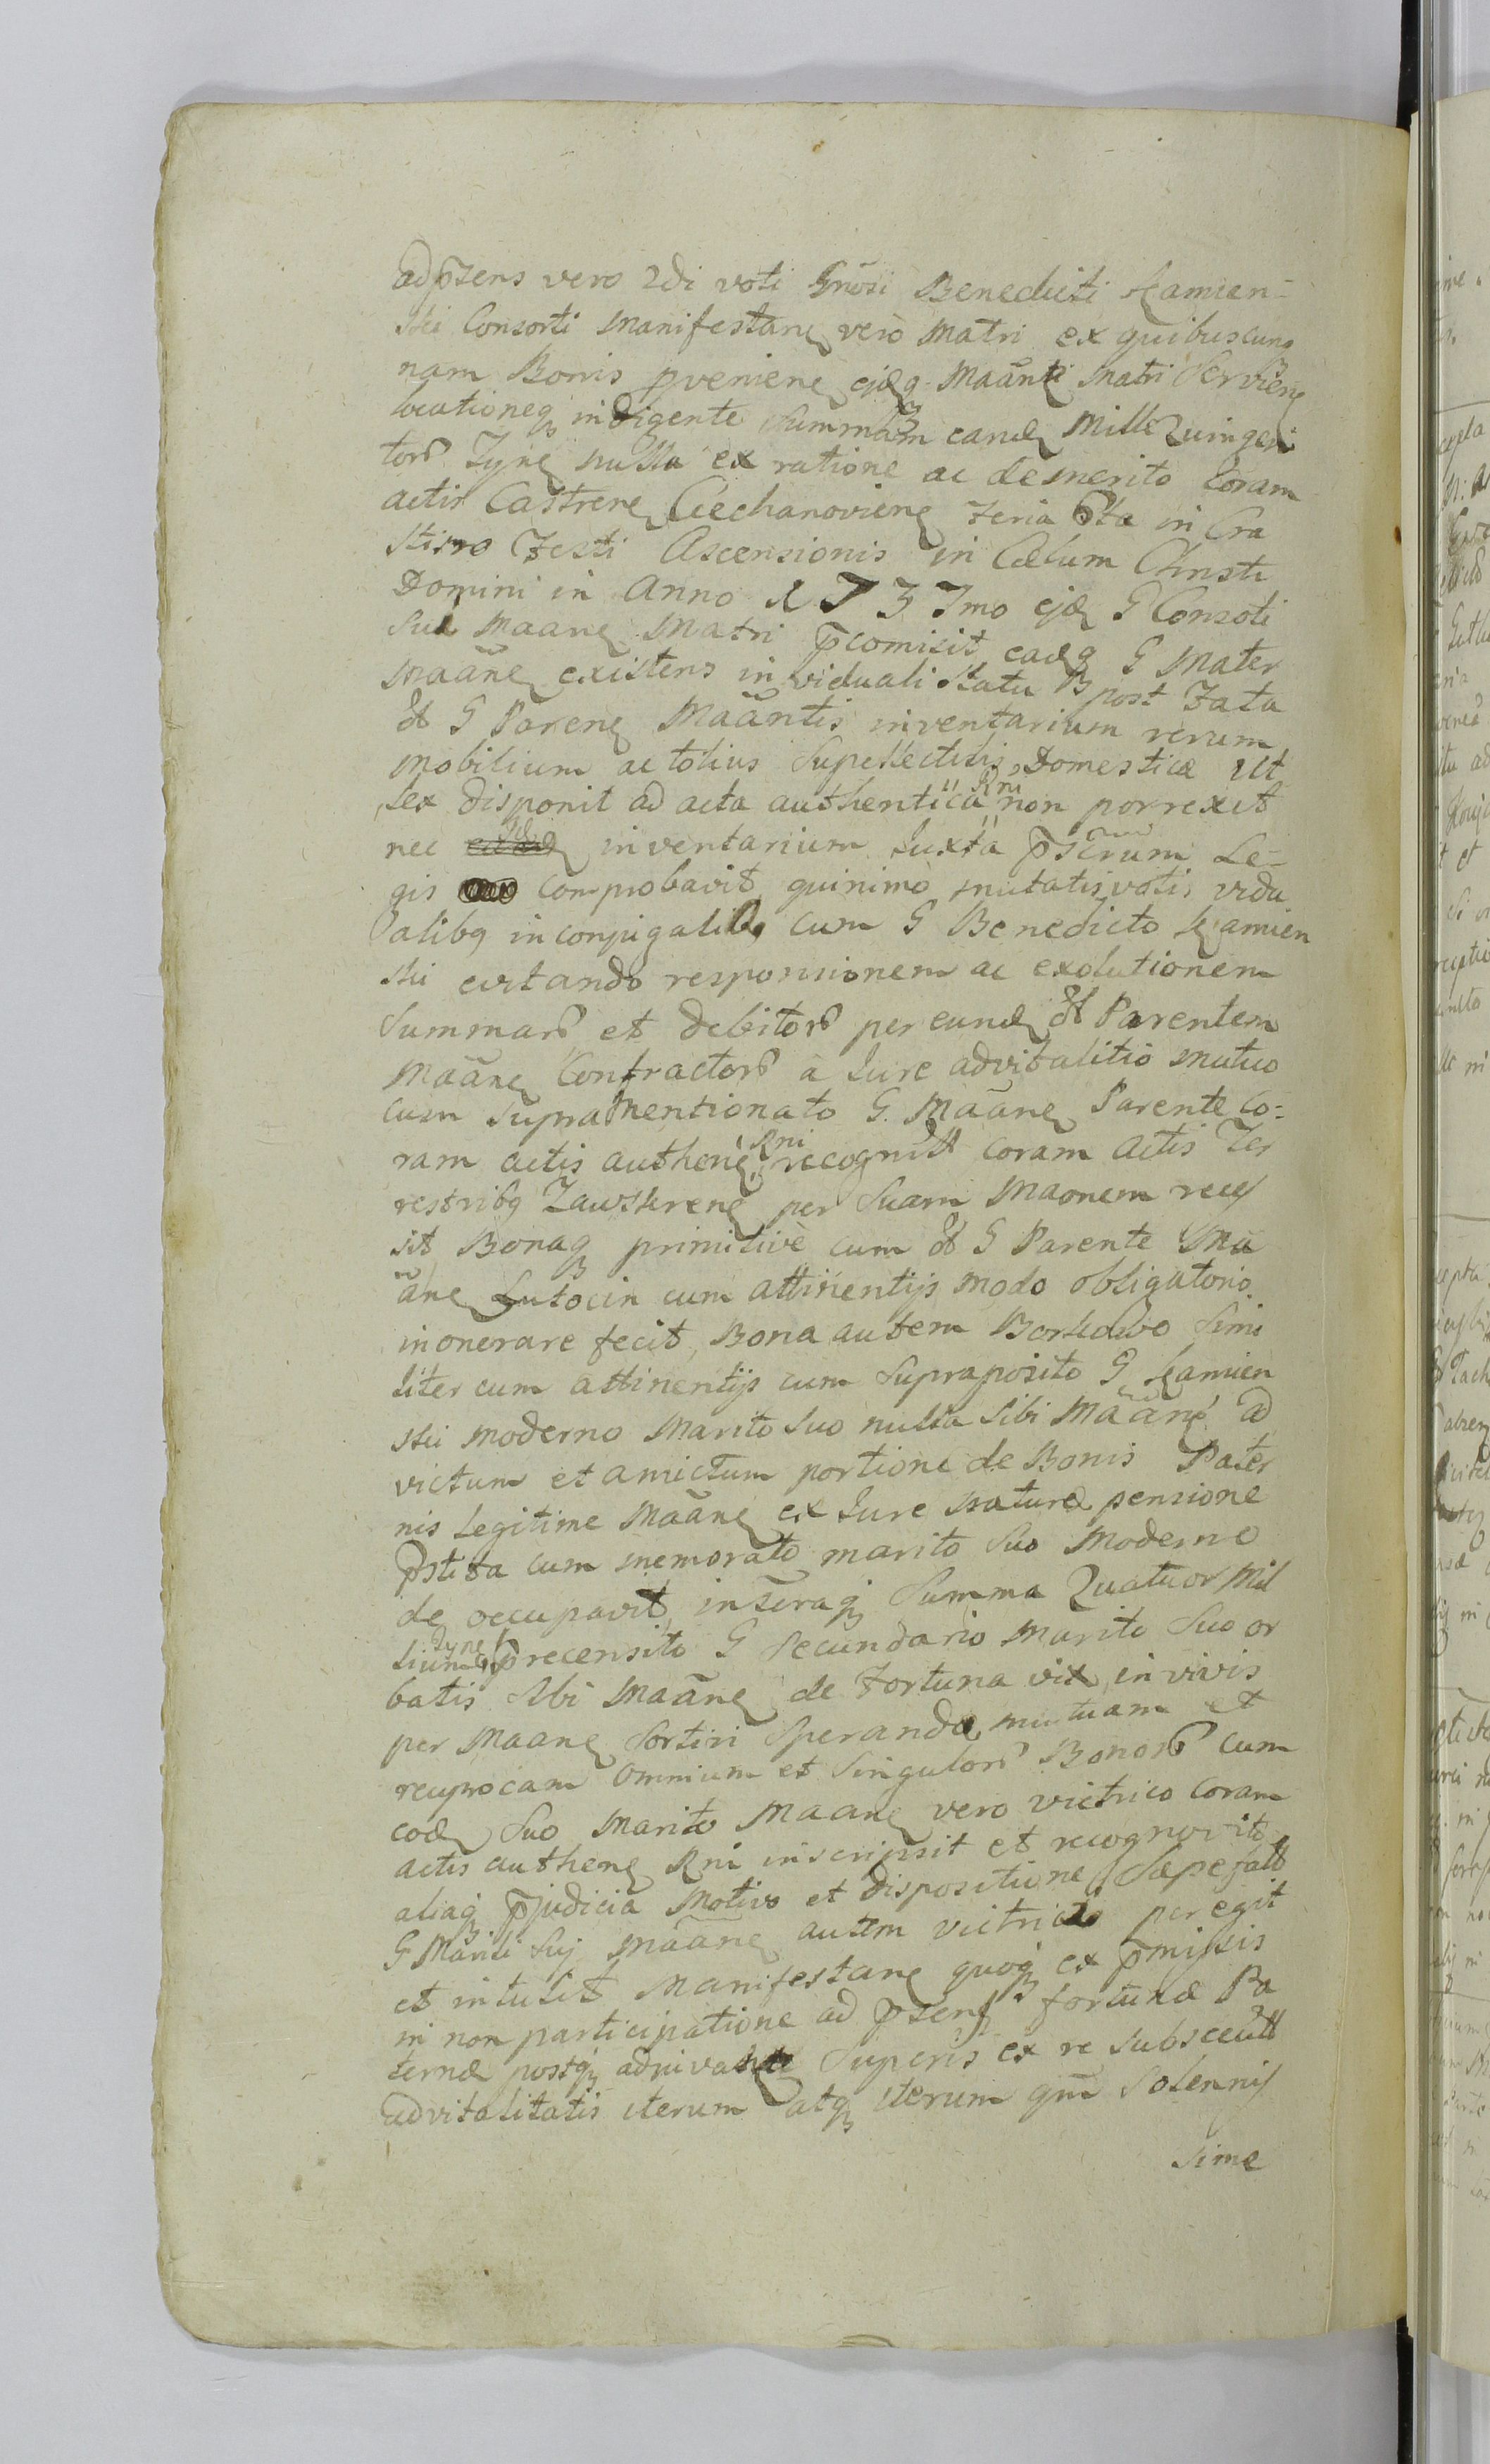 ad p̄sens vero 2di voti Gnōsi Benedicti Kamien-
ski Consorti Manifestanę verò Matri ex quibuscunq
nam Bonis pvenienę ejdęq Maānti Matri Servienę
locationeq indigente Summam eandę Mille Quingen
tors Tynę nulla ex ratione ac demerito Coram
actis Castrenę Ciechanovienę feria 6ta in Cra
stino Festi Ascensionis in Cælum Christi
Domini in Anno 1737mo ejdę G Consoti
Suæ Maanę Matri p̄comisit eadęq G Mater
Maānę existens in viduali Statu post Fata
olt G Parenę Maāntis inventarium rerum
Mobilium ac totius Supellectilis Domesticæ Ut
Lex disponit ad acta authentica Rni non porrexit
nec inventarium Juxta p̄scrūm Le-
gis Comprobavit, quinimò mutatis votis vidu
alibq in conjugalib, cum G Benedicto Kamien
ski evitando responsionem ac exolutionem
Summars et debitors per eundę olt Parentem
Maānę Contractors a Jure advitalitio mutuo
cum Supra Mentionato G. Maānę Parente Co-
ram actis authenę Rni recognitt coram Actis Ter
restribq Zawskrenę per Suam Maonem reces
sit Bonaq primitivè cum olt G Parente Ma
ānę Lutocin cum attinentijs modo obligatorio
inonerare fecit, Bona autem Borkowo Simi
liter cum attinentijs cum Supraposito G Kamien
ski moderno Marito Suo nulla Sibi Maānę ad
victum et amictum portione de Bonis Pater
nis Legitime Maānę ex Jure Naturæ pensione
p̄stita cum memorato marito Suo Moderno
de occupavit, intēraq Summa Quatuor Mil
lium Tynę precensito G Secundario Marito Suo or
batis Sibi Maānę de Fortuna vix in vivis
per Maanę Sortiri Speranda, mutuam et
recyprocam Omnium et Singulors Bonors cum
eodę Suo Marito Maanę vero victrico Coram
actis authenę Rni inscripsit et recognovit
aliaq p̄judicia Motivo et dispositione Sæpefatt
G Mariti Suj Maānę autem victrici peregit
et intulit Manifestanę quoq ex p̄missis
in non participatione ad p̄sens fortunæ Pa
ternæ postq Superis ex re Subsceutt
advitalitatis iterum atq iterum qm̄ Solennis
sime